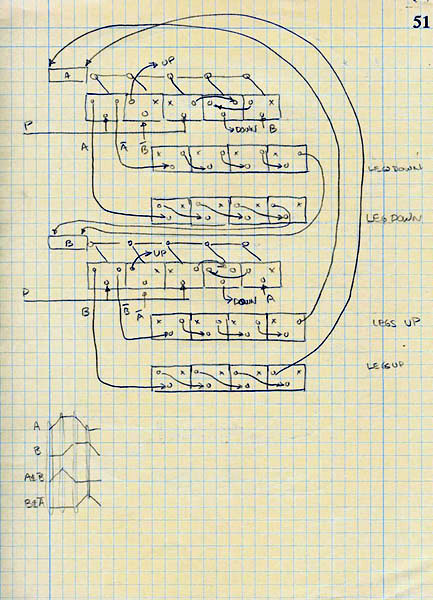 51
A
UP
P
DOWN
B
A
Ā
B̄
LEGDOWN
LEGDOWN
B
UP
P
DOWN
A
B
B̄
Ā
LEGS UP
LEGSUP
A
B
A&B
B&Ā